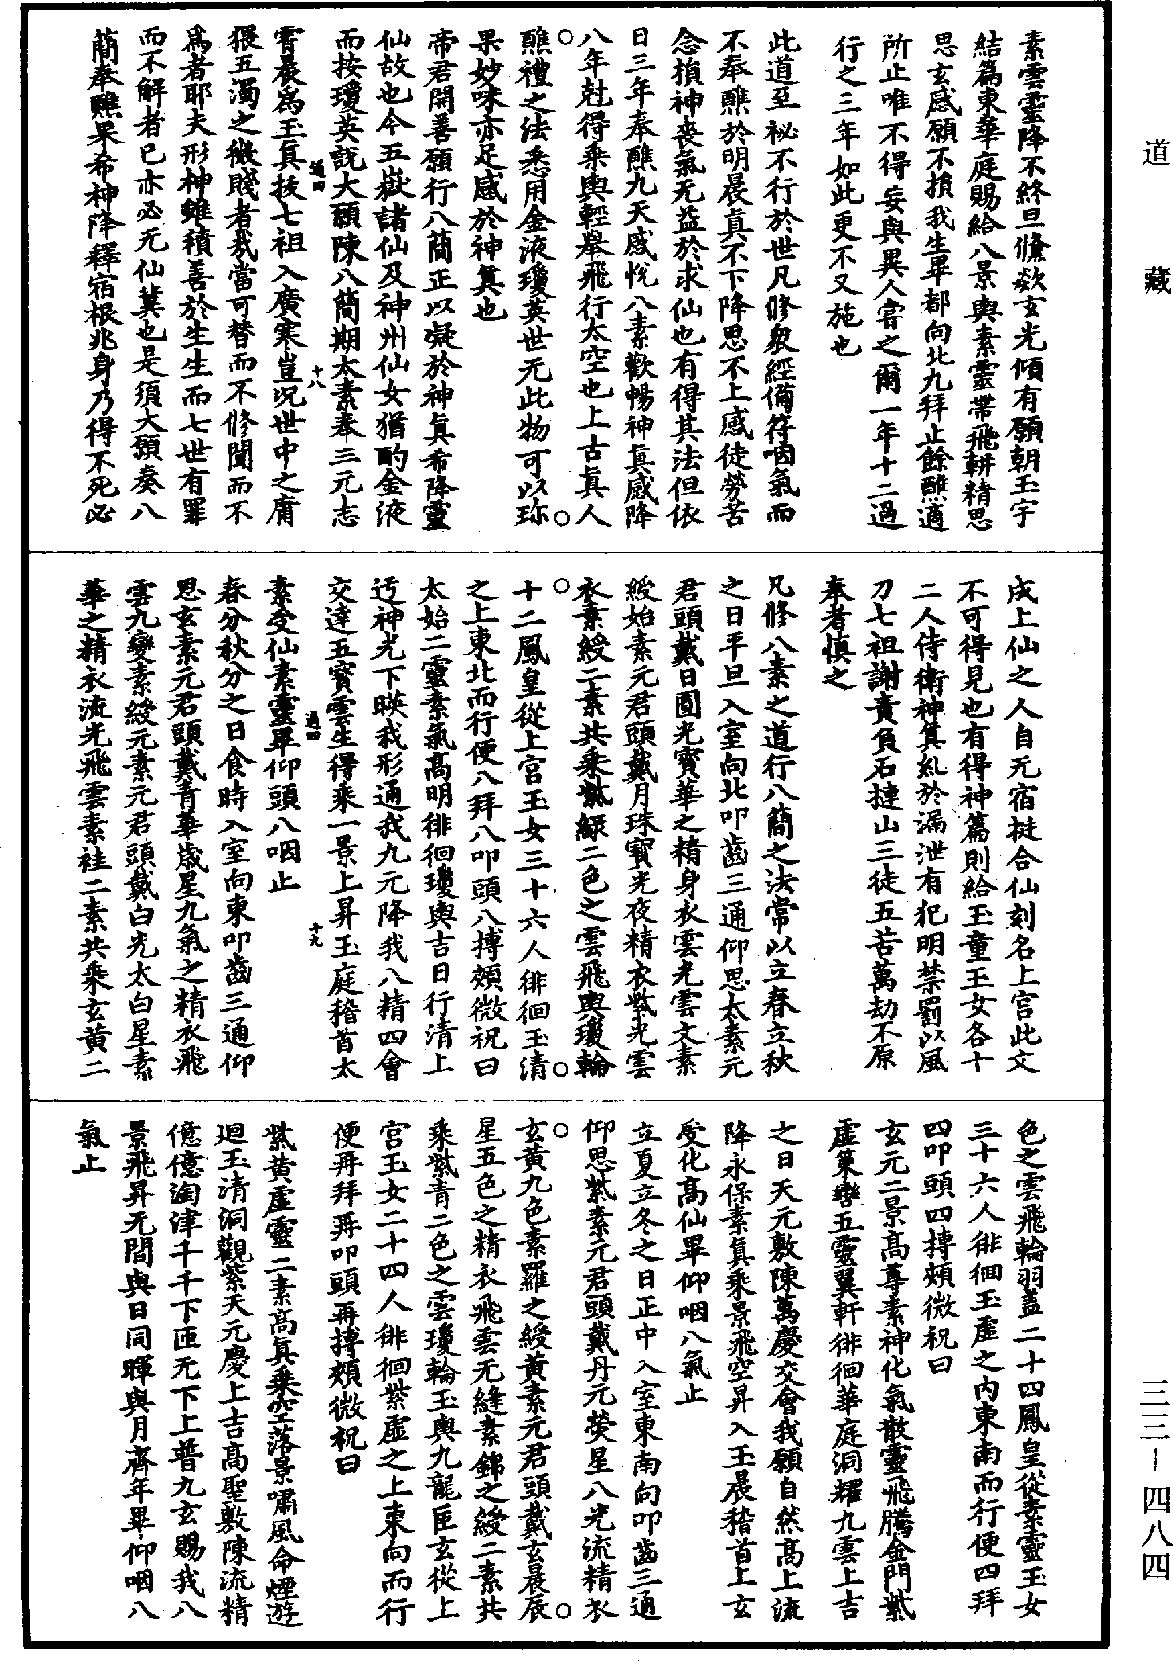 道藏
素雲靈降不終旦儵欻玄光傾有願朝玉宇
結篇東華庭賜給八景輿素靈帶飛軿精思
思玄感願不指我生畢都向北九拜止餘醮適
所止唯不得妄與異人甞之爾一年十二過
行之三年如此更不又施也
此道至祕不行於世凡修衆經備符咽氣而
不奉醮於明晨真不下降思不上感徒勞苦
念損神喪氣无益於求仙也有得其法但依
日三年奉醮九天感悅八素歡暢神真感降
八年尅得乘輿輕舉飛行太空也上古真人
醮禮之法悉用金液瓊英世无此物可以珎
果妙味亦足感於神真也
帝君開善願行八簡正以凝於神真希降靈
仙故也今五嶽諸仙及神州仙女猶酌金液
而按瓊英說大願陳八簡期太素奉三元志
過四 十八
霄晨爲玉真抜七祖入廣寒豈况世中之庸
猥五濁之微賤者哉當可替而不修聞而不
爲者耶夫形神雖積善於生生而七世有罪
而不解者已亦必无仙冀也是須大願奏八
簡奉醮果希神降釋宿根兆身乃得不死必
成上仙之人自无宿挺合仙刻名上宮此文
不可得見也有得神篇則給玉童玉女各十
二人侍衛神真糺於漏泄有犯明禁罰以風
刀七祖謝責負石揵山三徒五苦萬劫不原
奉者慎之
凡修八素之道行八簡之法常以立春立秋
之日平旦入室向北叩齒三通仰思太素元
君頭戴日圓光寳華之精身衣雲光雲文素
綬始素元君頭戴月珠寳光夜精衣紫光雲
衣素綬二素共乘紫緑二色之雲飛輿瓊輪
十二鳳皇從上宫玉女三十六人徘徊玉清
之上東北而行便八拜八叩頭八摶頰微祝曰
太始二靈素氣高明徘徊瓊輿吉日行清上
迃神光下暎我形通我九元降我八精四會
交達五寳雲生得乘一景上昇玉庭稽首太
過四 十九
素受仙素靈畢仰頭八咽止
春分秋分之日食時入室向東叩齒三通仰
思玄素元君頭戴青華歲星九氣之精衣飛
雲九變素綬元素元君頭戴白光太白星素
華之精衣流光飛雲素袿二素共乘玄黃二
色之雲飛輪羽蓋二十四鳳皇從素靈玉女
三十六人徘徊玉虛之内東南而行便四拜
四叩頭四摶頰微祝曰
玄元二景高尊素神化氣散靈飛騰金門紫
虛策轡五靈翼軒徘徊華庭洞耀九雲上吉
之日天元敷陳萬慶交會我願自然高上流
降永保素真乘景飛空昇入玉晨稽首上玄
受化高仙畢仰咽八氣止
立夏立冬之日正中入室東南向叩齒三通
仰思紫素元君頭戴丹元熒星八光流精衣
玄黃九色素羅之綬黃素元君頭戴玄晨辰
星五色之精衣飛雲无縫素錦之綬二素共
乘紫青二色之雲瓊輪玉輿九龍匡玄從上
宮玉女二十四人徘徊紫虛之上東向而行
便再拜再叩頭再摶頰微祝曰
紫黃虛靈二素高真乘空落景嘯風命煙遊
𢌞玉清洞觀紫天元慶上吉高聖敷陳流精
億億淘津千千下匝无下上普九玄賜我八
景飛昇无間與日同暉與月齊年畢仰咽八
氣止
三三-四八四